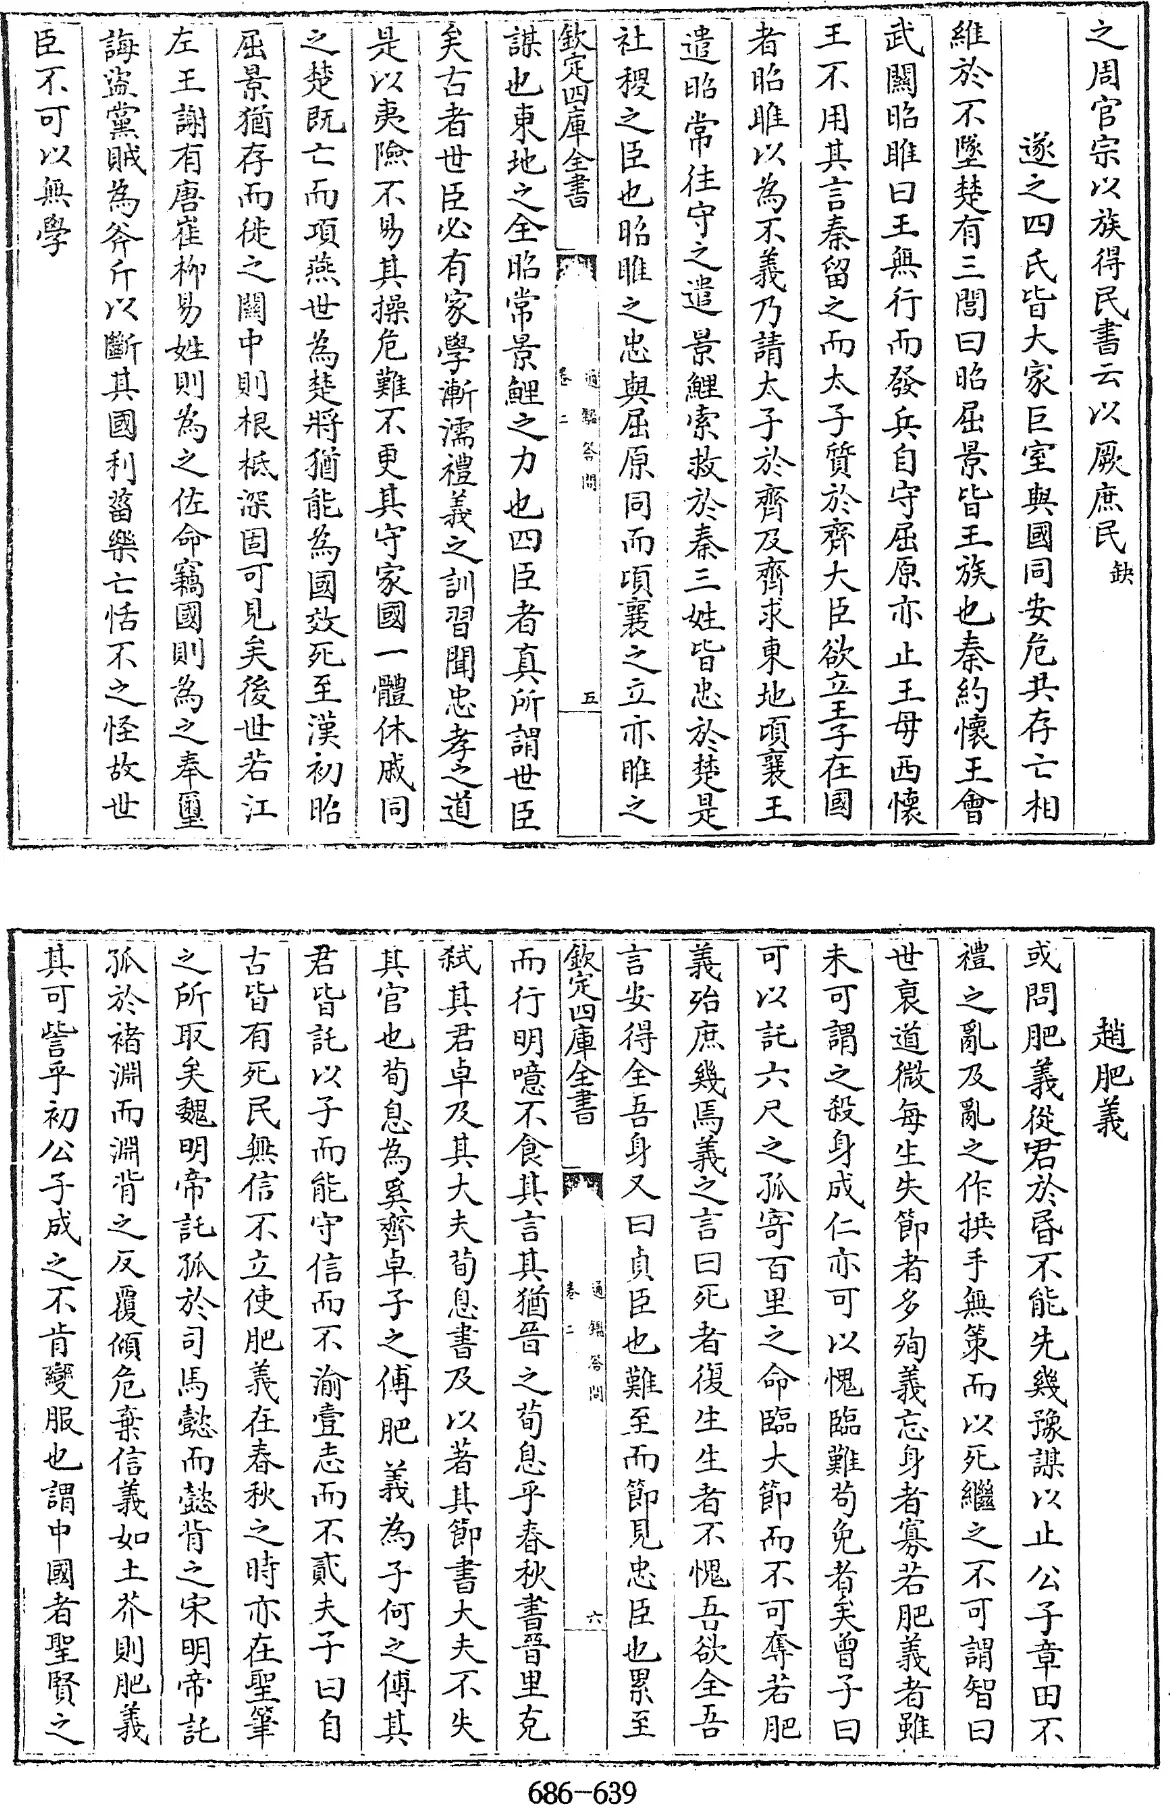 之周官宗以族得民書云以厥庶民缺
遂之四氏皆大家巨室與國同安危共存亡相
維於不墜楚有三閭曰昭屈景皆王族也秦約懷王會
武關昭睢曰王無行而發兵自守屈原亦止王毋西懷
王不用其言秦留之而太子質於齊大臣欲立王子在國
者昭睢以為不義乃請太子於齊及齊求東地頃襄王
遣昭常往守之遣景鯉索救於秦三姓皆忠於楚是
社稷之臣也昭睢之忠與屈原同而頃襄之立亦睢之
欽定四庫全書
通鑑答問
卷二
五
謀也東地之全昭常景鯉之力也四臣者真所謂世臣
矣古者世臣必有家學漸濡禮義之訓習聞忠孝之道
是以夷險不易其操危難不更其守家國一體休戚同
之楚既亡而項燕世為楚將猶能為國效死至漢初昭
屈景猶存而徙之關中則根柢深固可見矣後世若江
左王謝有唐崔柳易姓則為之佐命竊國則為之奉璽
誨盜黨賊為斧斤以斷其國利菑樂亡恬不之怪故世
臣不可以無學
趙肥義
或問肥義從君於昏不能先幾豫謀以止公子章田不
禮之亂及亂之作拱手無策而以死繼之不可謂智曰
世衰道微每生失節者多殉義忘身者寡若肥義者雖
未可謂之殺身成仁亦可以愧臨難苟免者矣曾子曰
可以託六尺之孤寄百里之命臨大節而不可奪若肥
義殆庶幾焉義之言曰死者復生生者不愧吾欲全吾
言安得全吾身又曰貞臣也難至而節見忠臣也累至
欽定四庫全書
通鑑答問
卷二
六
而行明噫不食其言其猶晉之荀息乎春秋書晉里克
弑其君卓及其大夫荀息書及以著其節書大夫不失
其官也荀息為奚齊卓子之傅肥義為子何之傅其
君皆託以子而能守信而不渝壹志而不貳夫子曰自
古皆有死民無信不立使肥義在春秋之時亦在聖筆
之所取矣魏明帝託孤於司馬懿而懿背之宋明帝託
孤於褚淵而淵背之反覆傾危棄信義如土芥則肥義
其可訾乎初公子成之不肯變服也謂中國者聖賢之
686-639